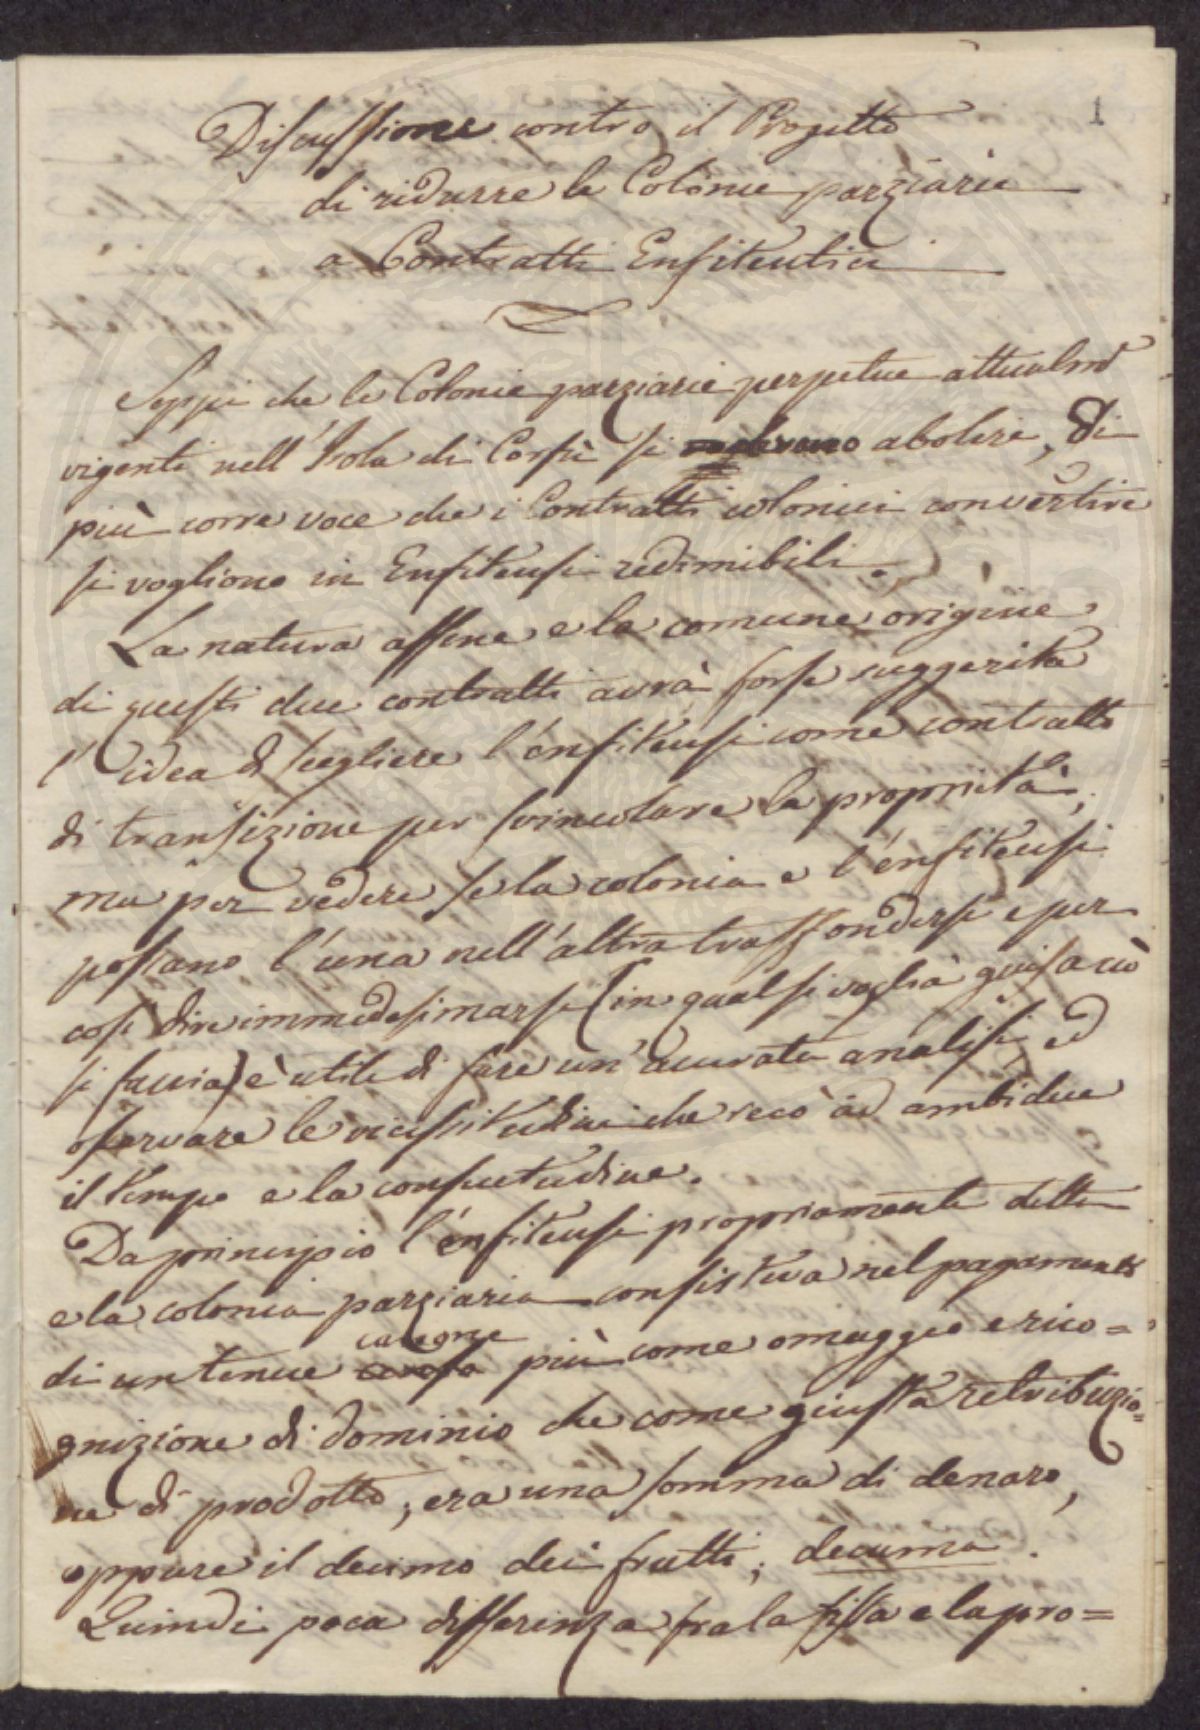 1
Discussione contro il Progetto
di ridurre le Colonie parziarie
a Contratti Enfiteutici
Seppi che le Colonie parziarie perpetue attualmᵉ
vigenti nell'Isola di Corfù si devono abolire, di
più corre voce che i Contratti colonici convertire
si vogliono in Enfiteusi redimibili.
La natura affine e la comune origine
di questi due contratti avrà forse suggerita
l'idea di scegliere l'enfiteusi come contratto
di transizione per svincolare la proprietà;
ma per vedere se la colonia e l'enfiteusi
possano l'una nell'altra trasffondersi e per
così dire immedesimarsi (in qualsivoglia guisa ciò
si faccia) è utile di fare un'accurata analisi, ed
osservare le vicissitudini che recò ad ambidue
il tempo e la consuetudine.
Da principio l'enfiteusi propriamente detta
e la colonia parziaria consisteva nel pagamento
di un tenue canone più come omaggio e rico=
gnizione di dominio che come giusta retribuzio=
ne di prodotto; era una somma di denaro,
oppure il decimo dei frutti; decuma.
Quindi poca differenza fra la fissa e la pro=